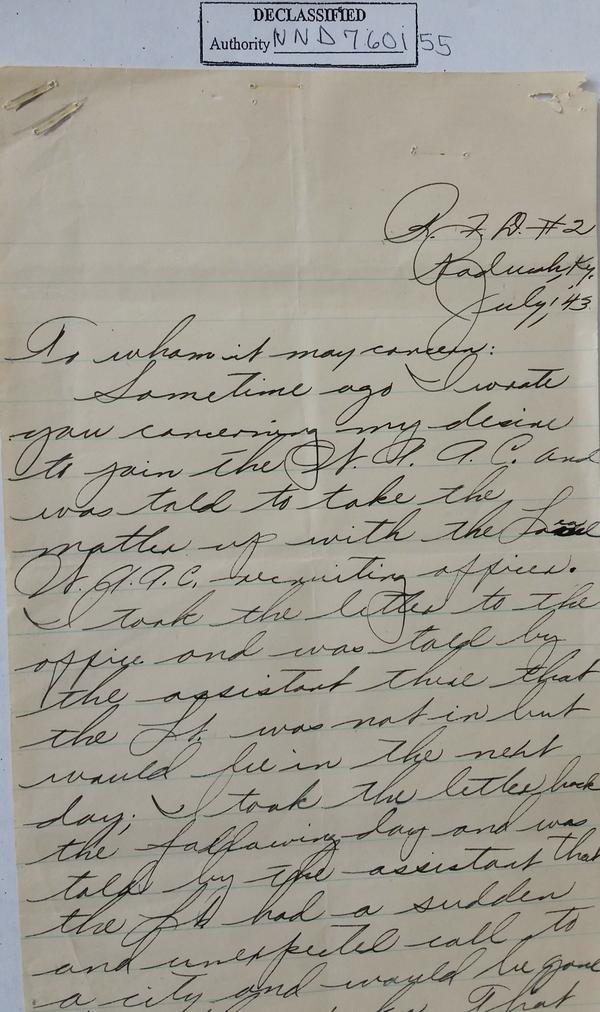 DECLASSIFIED
Authority NND 760155
R. F. D. #2
Paducah, Ky.
July, '43
To whom it may concern:
Sometime ago I wrote
you concerning my desire
to join the W. A. A. C. and
was told to take the
matter up with the Local
W. A. A. C. recruiting office.
I took the letter to the
office and was told by
the assistant there that
the Lt. was not in but
would be in the next
day; I took the letter back
the following day and was
told by the assistant that
the Lt had a sudden
and unexpected call to
a city and would be gone
That